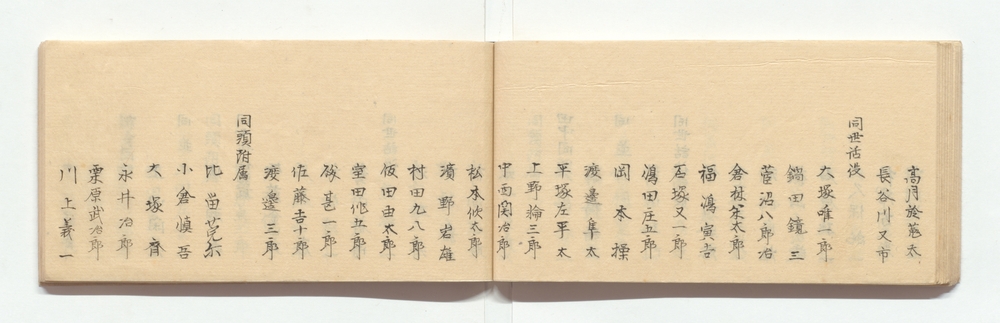 高月於菟太
長谷川又市
同世話役
大塚唯一郎
鍋田鏡三
菅沼八郎治
倉林栄太郎
福嶋寅吉
石塚又一郎
鴻田庄五郎
岡本操
渡邊隼太
平塚左平太
上野輪三郎
中西関治郎
松本伙太郎
濱野岩雄
村田九八郎
飯田由太郎
室田作五郎
甚一郎
佐藤吉十郎
渡邊三郎
同頭附属
比留
小倉慎吾
大塚齊
永井治郎
栗原武治郎
川上義一